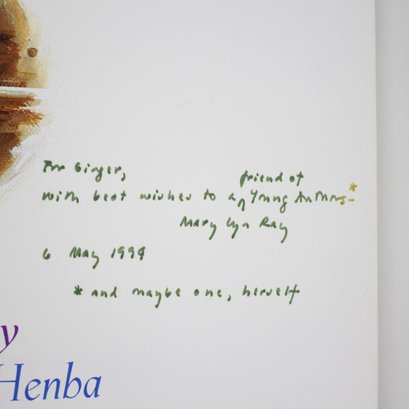 For Ginger,
friend of
with best wishes to a ^ Young Authors—*
Mary Lyn Ray
6 May 1999
* and maybe one, herself
y
Henba